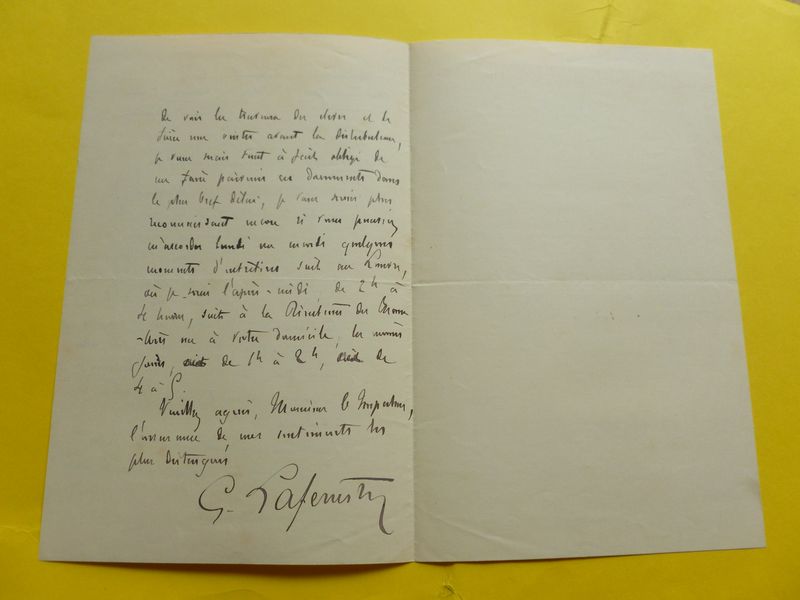 de voir les travaux des élèves et de
faire une visite avant la distribution,
je vous serais tout à fait obligé de
me faire parvenir ces documents dans
le plus bref délai, je vous serais plus
reconnaissant encore si vous pouviez
m'accorder lundi ou mardi quelques
moments d'entretien soit au Louvre,
où je serai l'après-midi de 2h à
4 heures, soit à la Direction des Beaux
-Arts ou à votre domicile, les mêmes
jours, de 1h à 2h, de
4 à 5.
Veuillez agréer, Monsieur l'Inspecteur,
l'assurance de mes sentiments les
plus distingués
G. Lafenestre